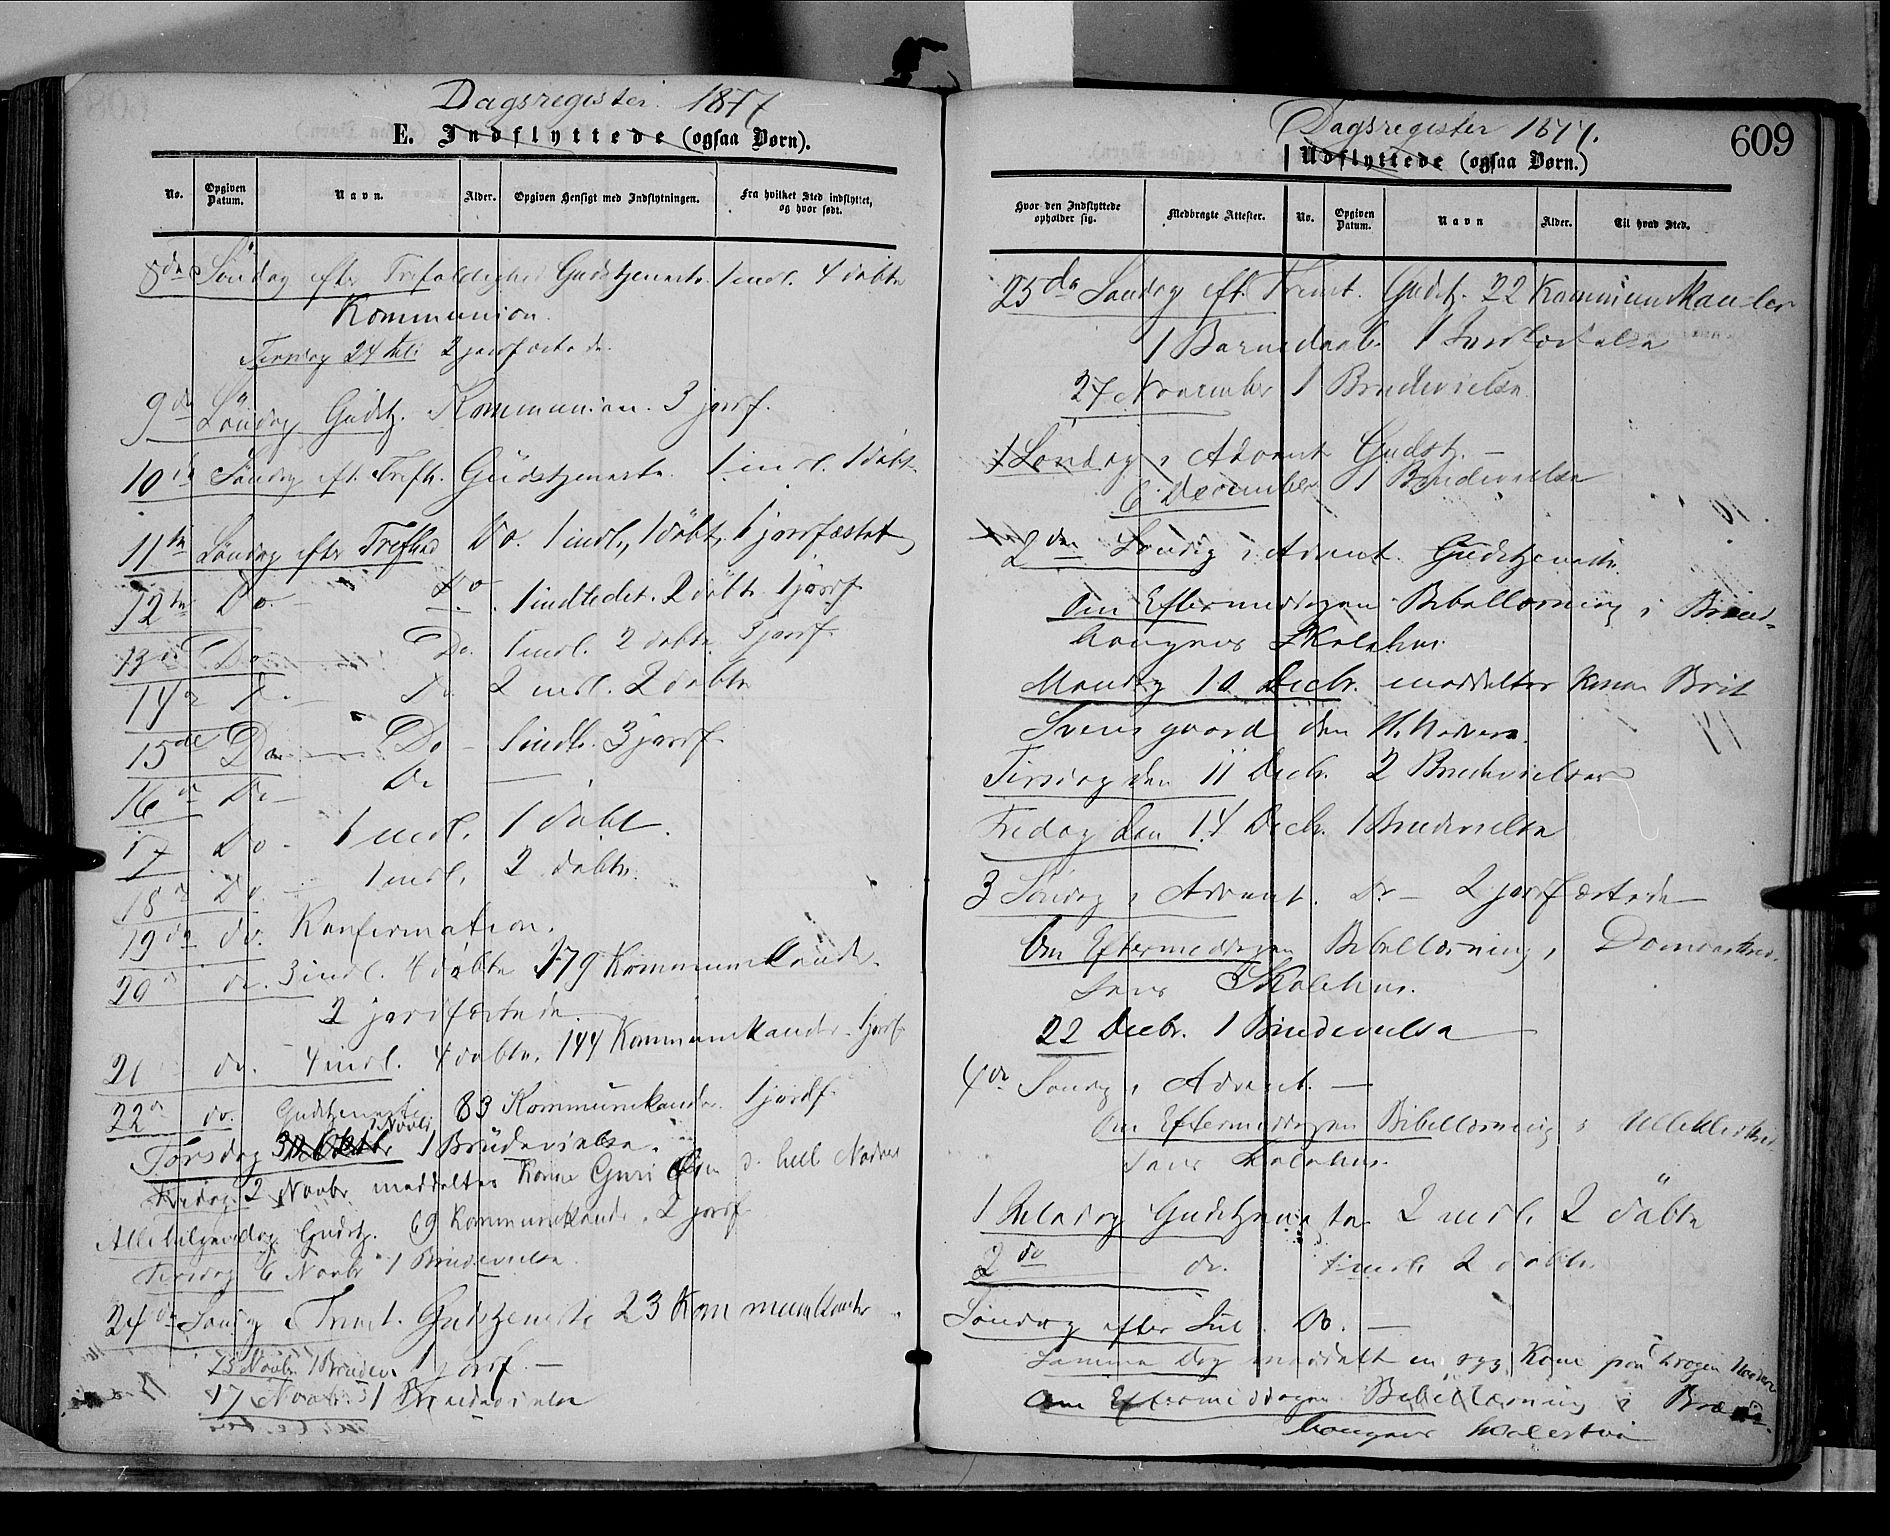 Dagsregister 1877
E. Indflyttede (ogsaa Børn).
No. Opgiven Datum. Navn. Alder. Opgiven Hensigt med Indflytningen. Fra hvilket Sted indflyttet, og hvor født.
8de Söndag efter Trefoldighed Gudstjeneste. 1 indl. 4 döbte
Kommunion.
Tirsdag 24 Juli 2 jordfæstede.
9de Söndag Gudstj. Kommunion. 3 jordf.
10de Söndag eft. Trefh. Gudstjeneste. 1 indl. 1 döbt.
11te Söndag efter Trefhed Do. 1 indl., 1 döbt, 1 jordfæstet
12te Do. Do. 1 indledet. 2 döbte. 1 jordf.
13de Do. Do. 1 indl. 2 döbte. 3 jordf.
14de Do. Do. 2 indl. 2 döbte
15de Do Do 1 indl. 3 jordf.
16de Do Do
17 Do. 1 indl. 1 döbt.
18de Do. 1 indl. 2 döbte.
19de do. Konfirmation.
20de do. 3 indl. 4 döbte 179 Kommunikanter.
2 jordfæstede.
21 do. 4 indl. 4 döbte. 144 Kommunikander. 1 jordf.
22de do. Gudstjeneste. 83 Kommunikander. 1 jordf.
Torsdag 1 Novbr 1 Brudevielse.
Fredag 2 Novbr meddeltes Kone Guri d. hell. Nadvere
Allehelgensdag Gudstj. 69 Kommunikande. 2 jordf
Tirsdag 6 Novbr 1 Brudevielse.
24de Söndag e Trinit. Gudstjeneste 23 Kommunikanter
1 Brudev. 1 jordf. —
17 Novbr. 1 Brudevielse
Dagsregister 1877.
609
Udflyttede (ogsaa Børn.)
Hvor den Indflyttede opholder sig. Medbragte Attester. No. Opgiven Datum. Navn Alder. Til hvad Sted.
25de Söndag eft. Trinit. Gudstj. 22 Kommunikander
1 Barnedaab. 1 Jordfæstelse
27 November 1 Brudevielse.
1 Söndag i Advent Gudstj. —
6 December 1 Brudevielse
2den Söndag i Advent. Gudstjeneste.
Om Eftermiddagen Bibellæsning i
Skolehus.
Mandag 10 Decbr. meddeltes Kone Brit
den H. Nadvere.
Tirsdag den 11 Decbr. 2 Brudevielser
Fredag den 14 Decbr. 1 Brudevielse
3 Söndag i Advent. Do — 2 jordfæstede
Om Eftermiddagen Bibellæsning i
Skolehus.
22 Decbr. 1 Brudevielse
4de Söndag i Advent. —
Om Eftermiddagen Bibellæsning i
Skolehus.
1 Juledag Gudstjeneste 2 indl. 2 döbte
2 do do. 1 indl. 2 döbte.
Söndag efter Jul. Do. —
Samme Dag meddelt en syg Kone
Om Eftermiddagen Bibellæsning i